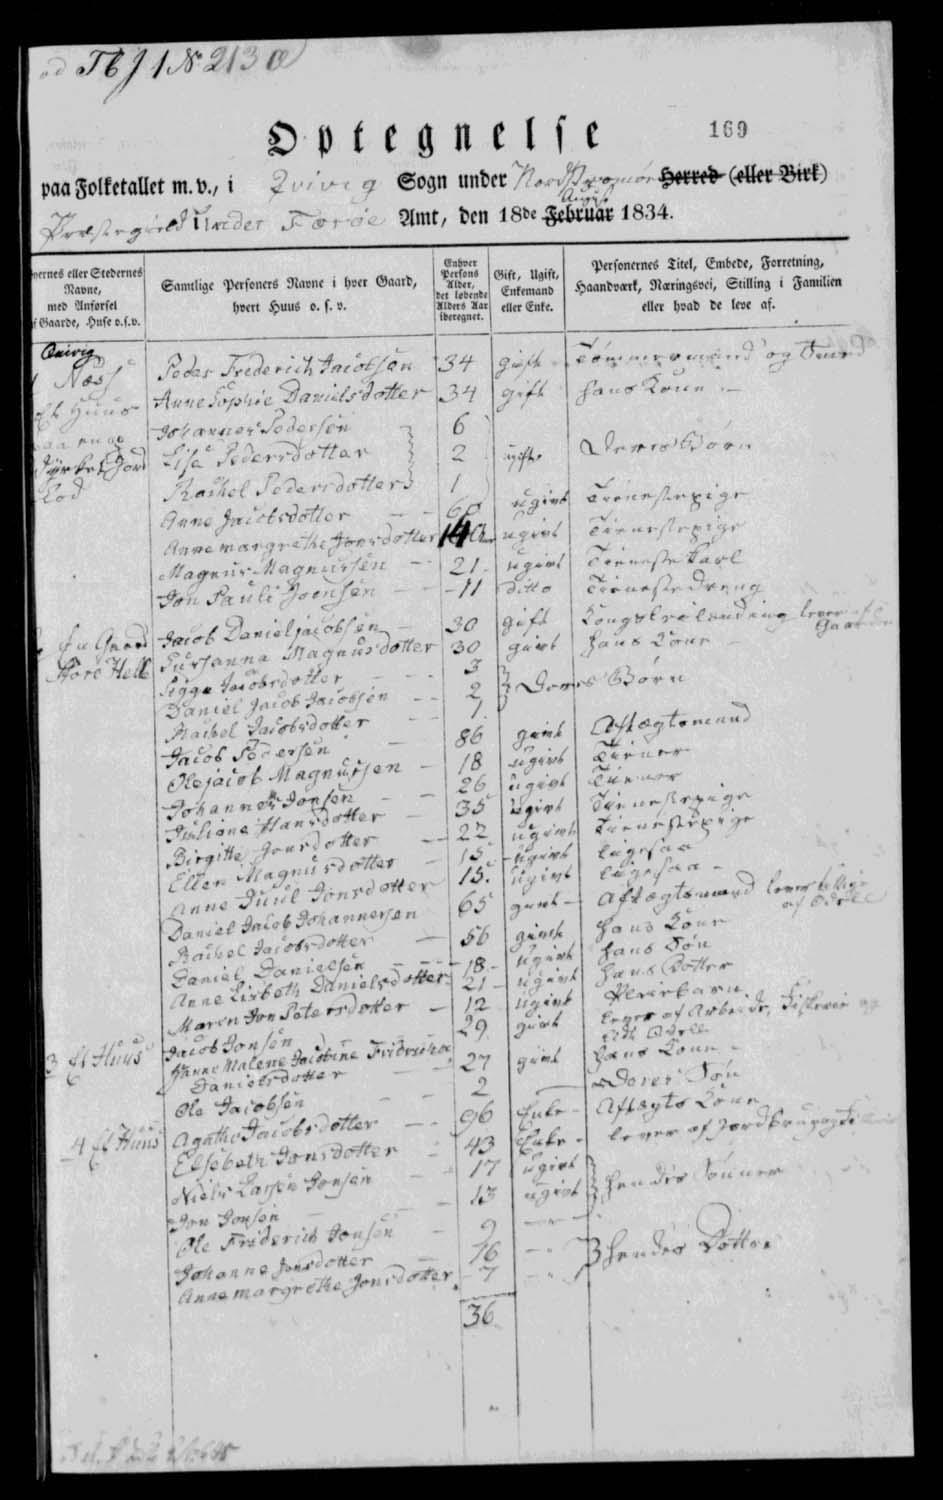 ad TBJ 1 No 213
169
Optegnelse
paa Folketallet m.v., i Qvivig Sogn under Nordstromøe Herred (eller Birk)
Præstegield Under Færøe Amt, den 18de Februar August 1834.
Byernes eller Stedernes Navne, med Anførsel af Gaarde, Huse o.s.v.
Samtlige Personers Navne i hver Gaard, hvert Huus o. s. v.
Enhver Persons Alder, det løbende Alders Aar iberegnet.
Gift, Ugift, Enkemand eller Enke.
Personernes Titel, Embede, Forretning, Haandværk, Næringsvei, Stilling i Familien eller hvad de leve af.
Qvivig
1 Næss Peder Frederich Jacobsen 34 gift Tømmermand og
Et Huus Anne Sophie Danielsdotter 34 gift hans Kone
paa en Johannes Pedersen 6
Dyrket Jord Lise Pedersdotter 2 ugifte Deres Børn
Lod Rachel Pedersdotter 1
Anne Jacobsdotter ugivt Tienestepige
Anne margrethe Joensdotter 14 ugivt Tienestepige
Magnus Magnussen 21 ugivt Tieneste Karl
Jon Pauli Joensen 11 ditto Tieneste Dreng
En Gaard Jacob Danieljacobsen 30 gift Kongstrælænding lever af Gaarden
Store Helle Sussanna Magnusdotter 30 givt hans Kone
Sigga Jacobsdotter 3
Daniel Jacob Jacobsen 2 Deres Børn
Rachel Jacobsdotter 1
Jacob Pedersen 86 givt Aftægtsmand
Olejacob Magnussen 18 ugivt Tiener
Johannes Jonsen 26 ugivt Tiener
Juliane Hansdotter 35 ugivt Tienestepige
Birgitte Jonsdotter 22 ugivt Tienestepige
Ellen Magnusdotter 15 ugivt ligesaa
Anne Juul Jonsdotter 15 ugivt ligesaa
Daniel Jacob Johannesen 65 givt Aftægtsmand lever tillige af Odell
Rachel Jacobsdotter 56 givt hans Kone
Daniel Danielsen 18 ugivt hans Søn
Anne Lisbeth Danielsdotter 21 ugivt hans Dotter
Maren Jon Petersdotter 12 ugivt Pleiebarn
3 Et Huus Jacob Jonsen 29 givt lever af Arbeide, Fiskerie og lidt Odell
Hanne Malene Jacobine Fridricka Danielsdotter 27 givt hans Kone
Ole Jacobsen 2 Deres Søn
4 Et Huus Agathe Jacobsdotter 96 Enke Aftægts Kone
Elsebeth Jonsdotter 43 Enke lever af Jordbrug og
Niels Larsen Jonsen 17 ugivt
Jon Jonsen 13 ugivt hendes Sønner
Ole Friderich Jonsen 9
Johanne Jonsdotter 16 hendes Døttre
Anne margrethe Jonsdotter 7
36